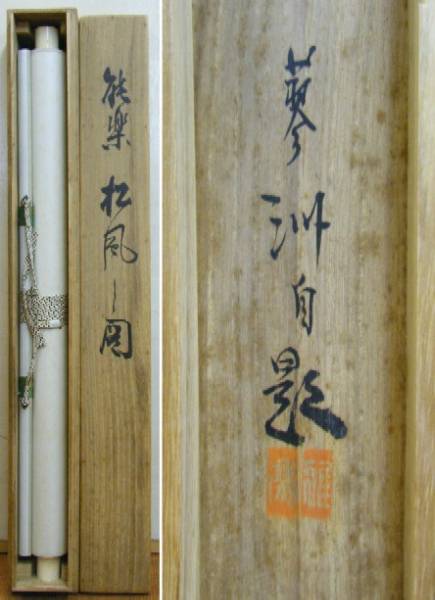 能楽 松風之図
蓼洲自題